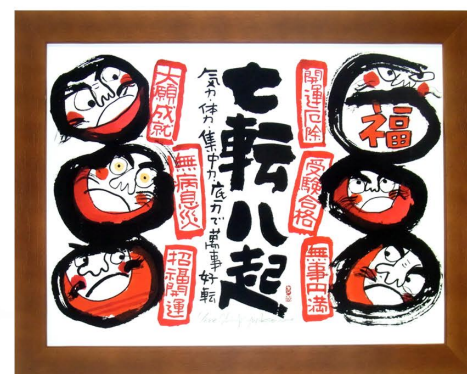 福
開運厄除
受験合格
無事円満
七転八起
気力体力集中力底力で萬事好転
大願成就
無病息災
招福開運